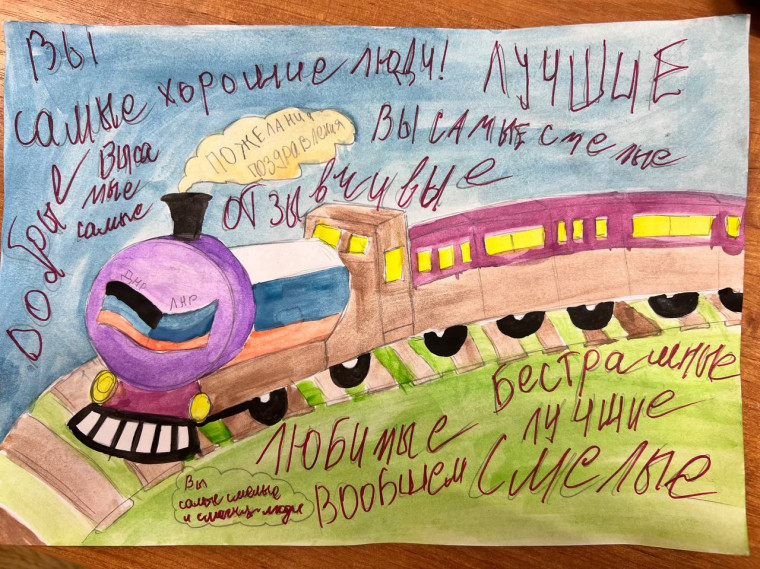 ВЫ
самые хорошие люди!
ЛУЧШИЕ
ПОЖЕЛАНИЯ
ПОЗДРАВЛЕНИЯ
ВЫ САМЫЕ смелые
Добрые
Выса
мые
самые
отзывчивые
ДНР
ЛНР
Бестрашные
Любимые
лучшие
вообщем смелые
Вы
самые смелые
и люди